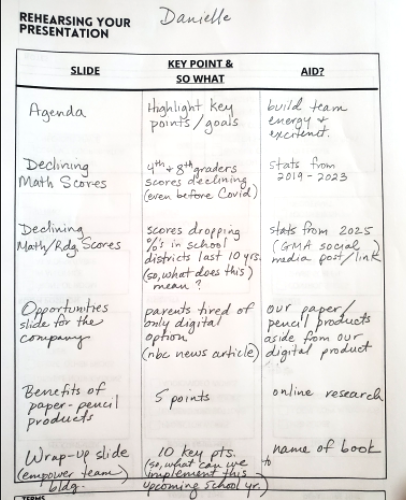 REHEARSING YOUR
PRESENTATION
Danielle
SLIDE
KEY POINT &
SO WHAT
AID?
Agenda
Highlight key
points/goals
build team
energy +
excitent.
Declining
Math Scores
4th + 8th graders
scores declining
(even before Covid)
stats from
2019-2023
Declining
Math/Rdg. Scores
scores dropping
%'s in school
districts last 10 yrs.
(so, what does this)
mean?
stats from 2025
(GMA social)
media post/link
Opportunities
slide for the
company
parents tired of
only digital
option
(nbc news article)
our paper/
pencil products
aside from our
digital product
Benefits of
paper-pencil
products
5 points
online research
Wrap-up slide
(empower team)
bldg.
10 key pts.
(so, what can we to
implement this
upcoming school yr.)
name of book
TERMS